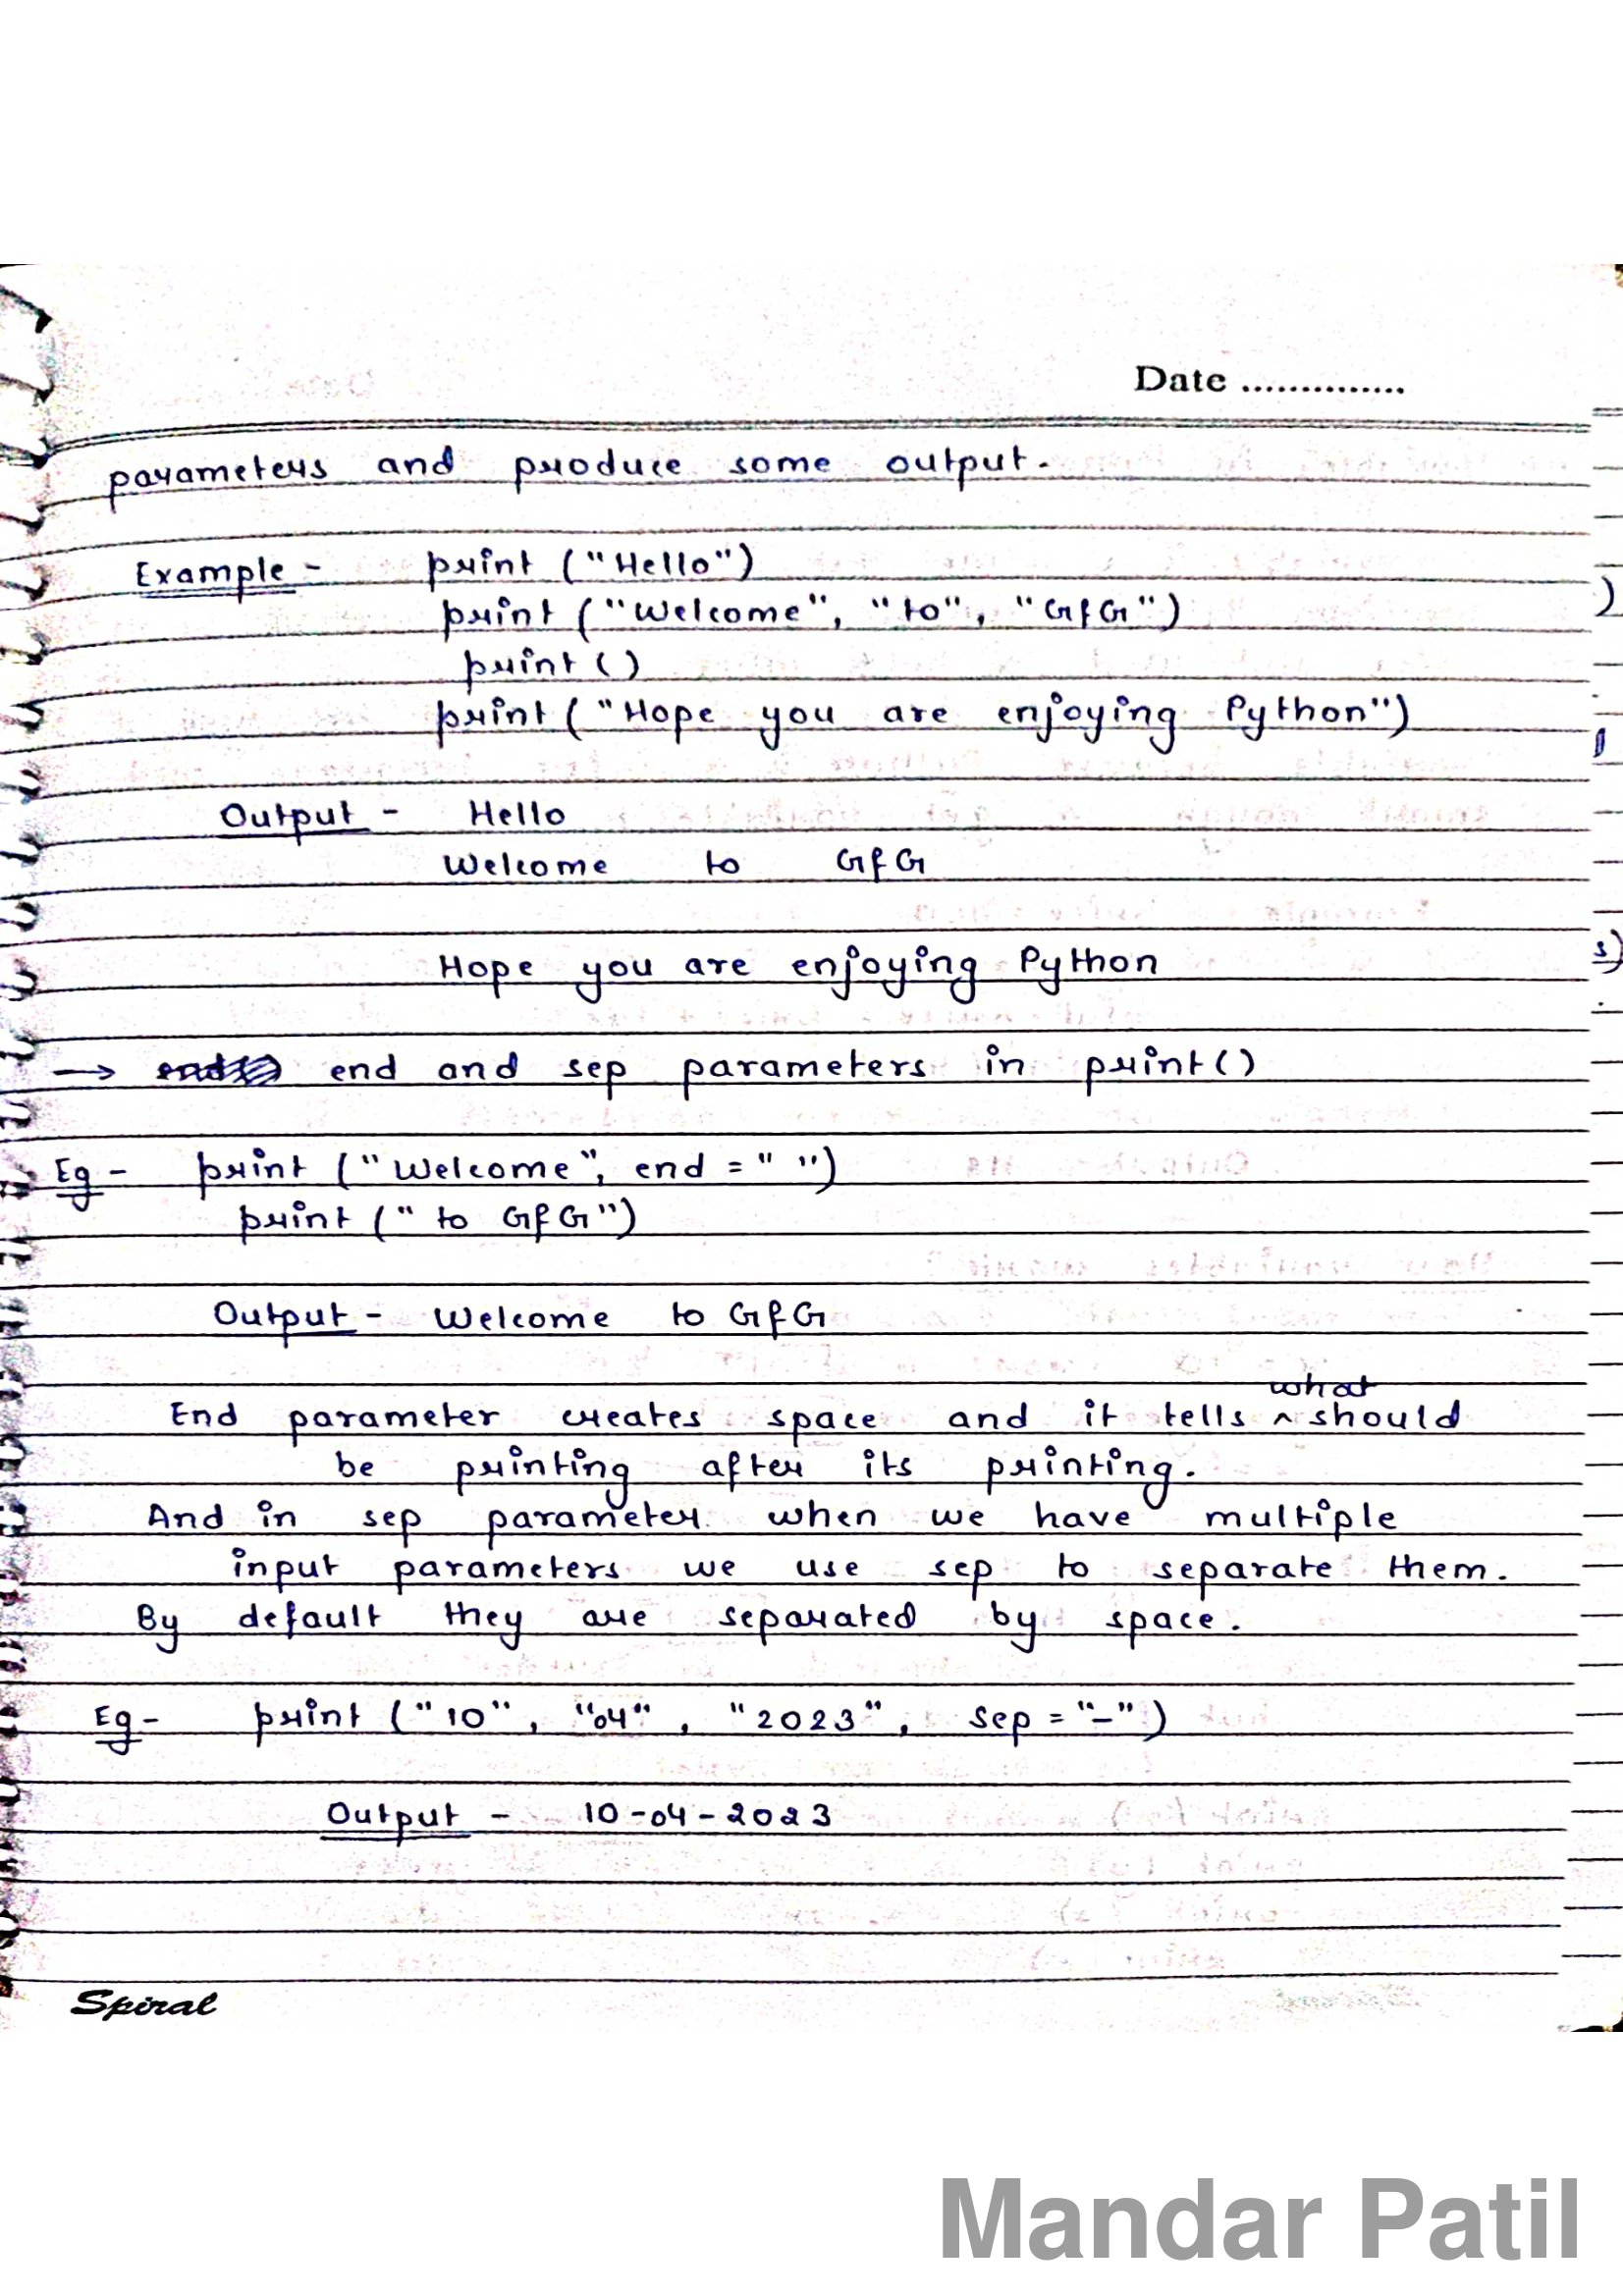 Date ..............
parameters and produce some output.
Example - print ("Hello")
print ("Welcome", "to", "GfG")
print ()
print ("Hope you are enjoying Python")
Output - Hello
Welcome to GfG
Hope you are enjoying Python
→ end and sep parameters in print()
Eg - print ("Welcome", end = " ")
print (" to GfG")
Output - Welcome to GfG
what
End parameter creates space and it tells ^ should
be printing after its printing.
And in sep parameter when we have multiple
input parameters we use sep to separate them.
By default they are separated by space.
Eg - print ("10", "04", "2023", sep = "-")
Output - 10-04-2023
Spiral
Mandar Patil